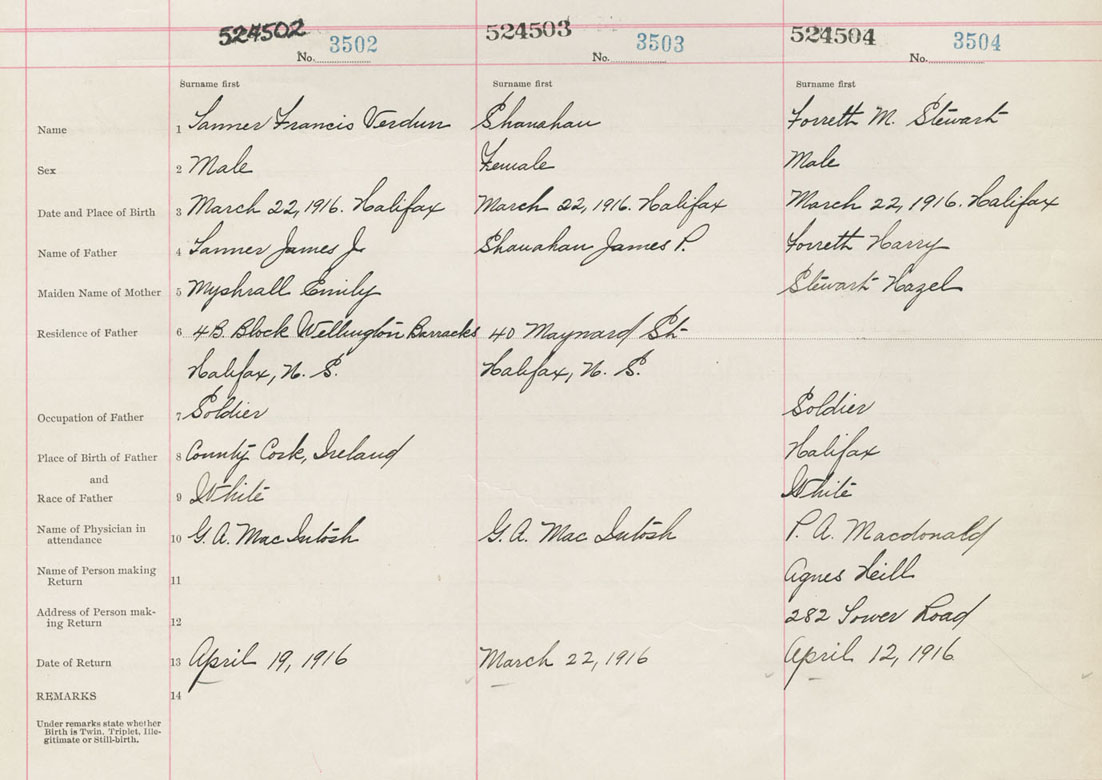 524502 524503 524504
No. 3502 No. 3503 No. 3504
Surname first Surname first Surname first
Name 1 Tanner Francis Verdun Shanahan Forreth M. Stewart
Sex 2 Male Female Male
Date and Place of Birth 3 March 22, 1916. Halifax March 22, 1916. Halifax March 22, 1916. Halifax
Name of Father 4 Tanner James J. Shanahan James P. Forreth Harry
Maiden Name of Mother 5 Myshrall Emily Stewart Hazel
Residence of Father 6 4 B. Block Wellington Barracks 40 Maynard St
Halifax, N. S. Halifax, N. S.
Occupation of Father 7 Soldier Soldier
Place of Birth of Father 8 County Cork, Ireland Halifax
and
Race of Father 9 White White
Name of Physician in
attendance 10 G. A. MacIntosh G. A. Mac Intosh P. A. Macdonald
Name of Person making
Return 11 Agnes Neill
Address of Person mak-
ing Return 12 282 Tower Road
Date of Return 13 April 19, 1916 March 22, 1916 April 12, 1916
REMARKS 14
Under remarks state whether
Birth is Twin, Triplet, Ille-
gitimate or Still-birth.